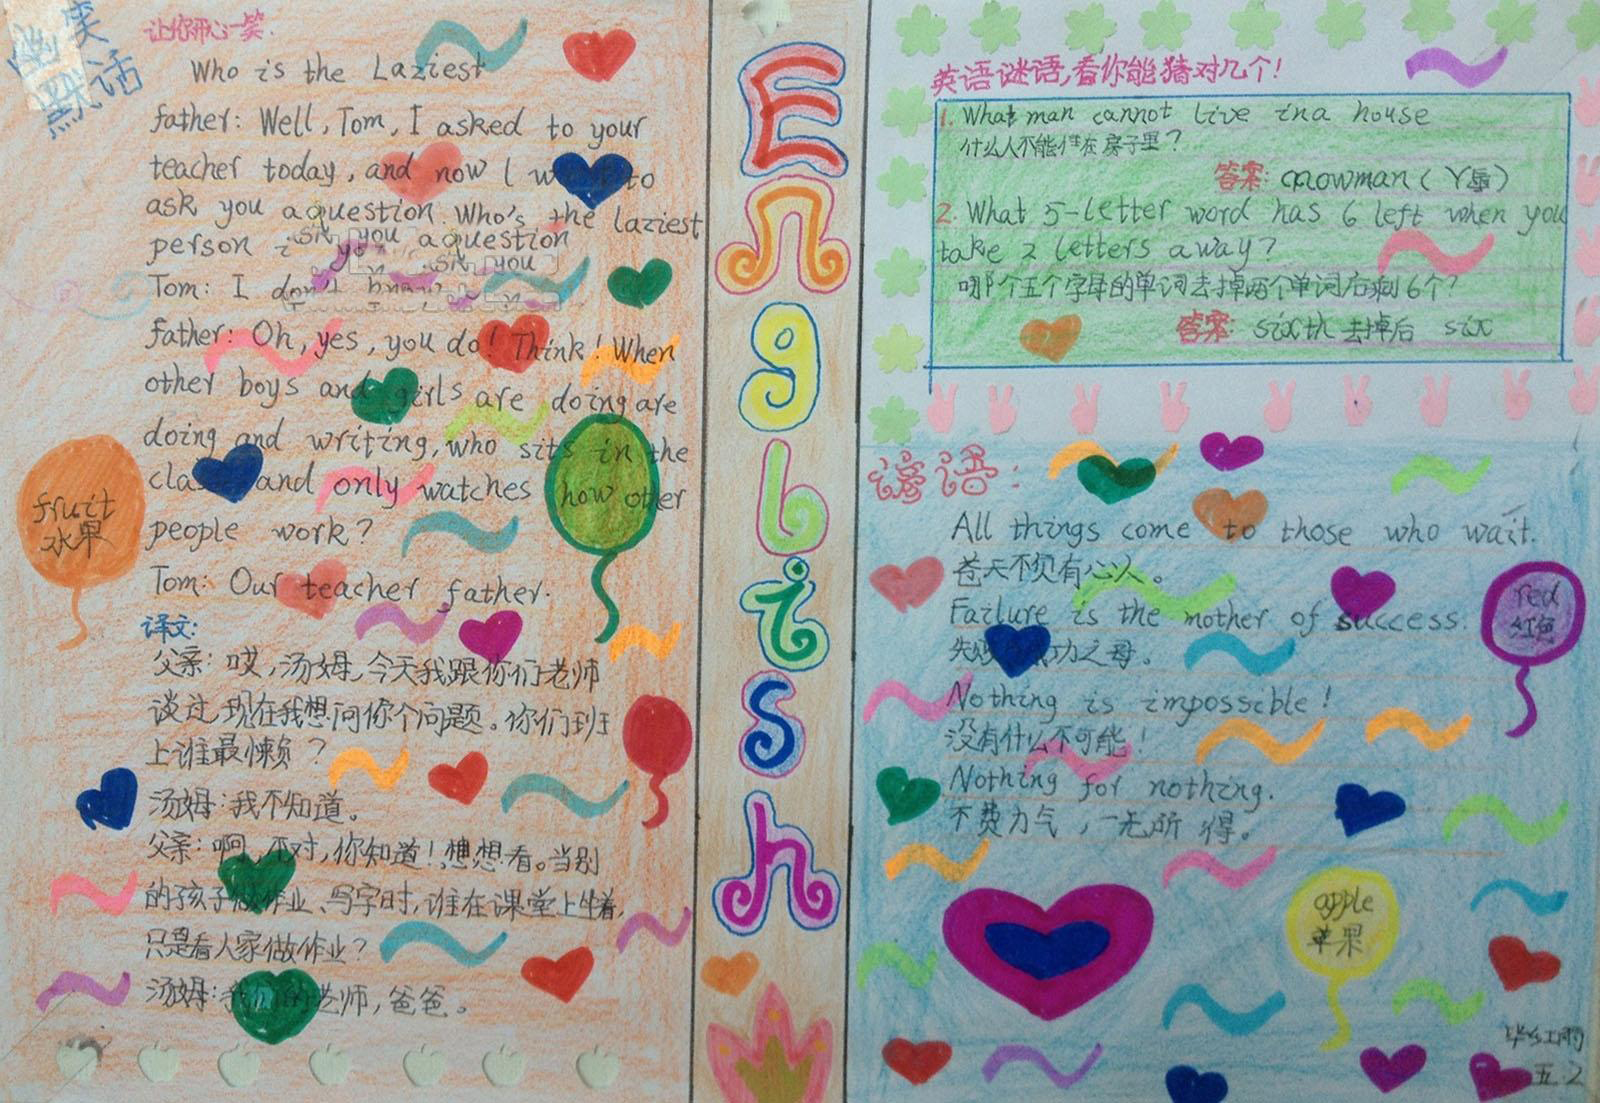 幽默笑话
让你开心一笑.
Who is the Laziest
father: Well, Tom, I asked to your
teacher today, and now I to
ask you aquestion. Who's the laziest
person
Tom: I don't know
father: Oh, yes, you do! Think! When
other boys and girls are doing are
doing and writing, who sits in the
class and only watches how other
people work?
Tom: Our teacher father.
译文:
父亲: 哎,汤姆,今天我跟你们老师
谈过,现在我想问你个问题。你们班
上谁最懒?
汤姆:我不知道。
父亲:啊,不对,你知道!想想看。当别
的孩子做作业、写字时,谁在课堂上坐着,
只是看人家做作业?
汤姆:我们的老师,爸爸。
fruit
水果
English
英语谜语,看你能猜对几个!
1. What man cannot live ina house
什么人不能住在房子里?
答案:
2. What 5-letter word has 6 left when you
take 2 letters away?
哪个五个字母的单词去掉两个单词后剩6个?
答案: sixth 去掉后 six
谚语:
All things come to those who wait.
苍天不负有心人。
Failure is the mother of success.
失败 成功之母。
Nothing is impossible!
没有什么不可能!
Nothing for nothing.
不费力气,一无所得。
red
红色
apple
苹果
五.2